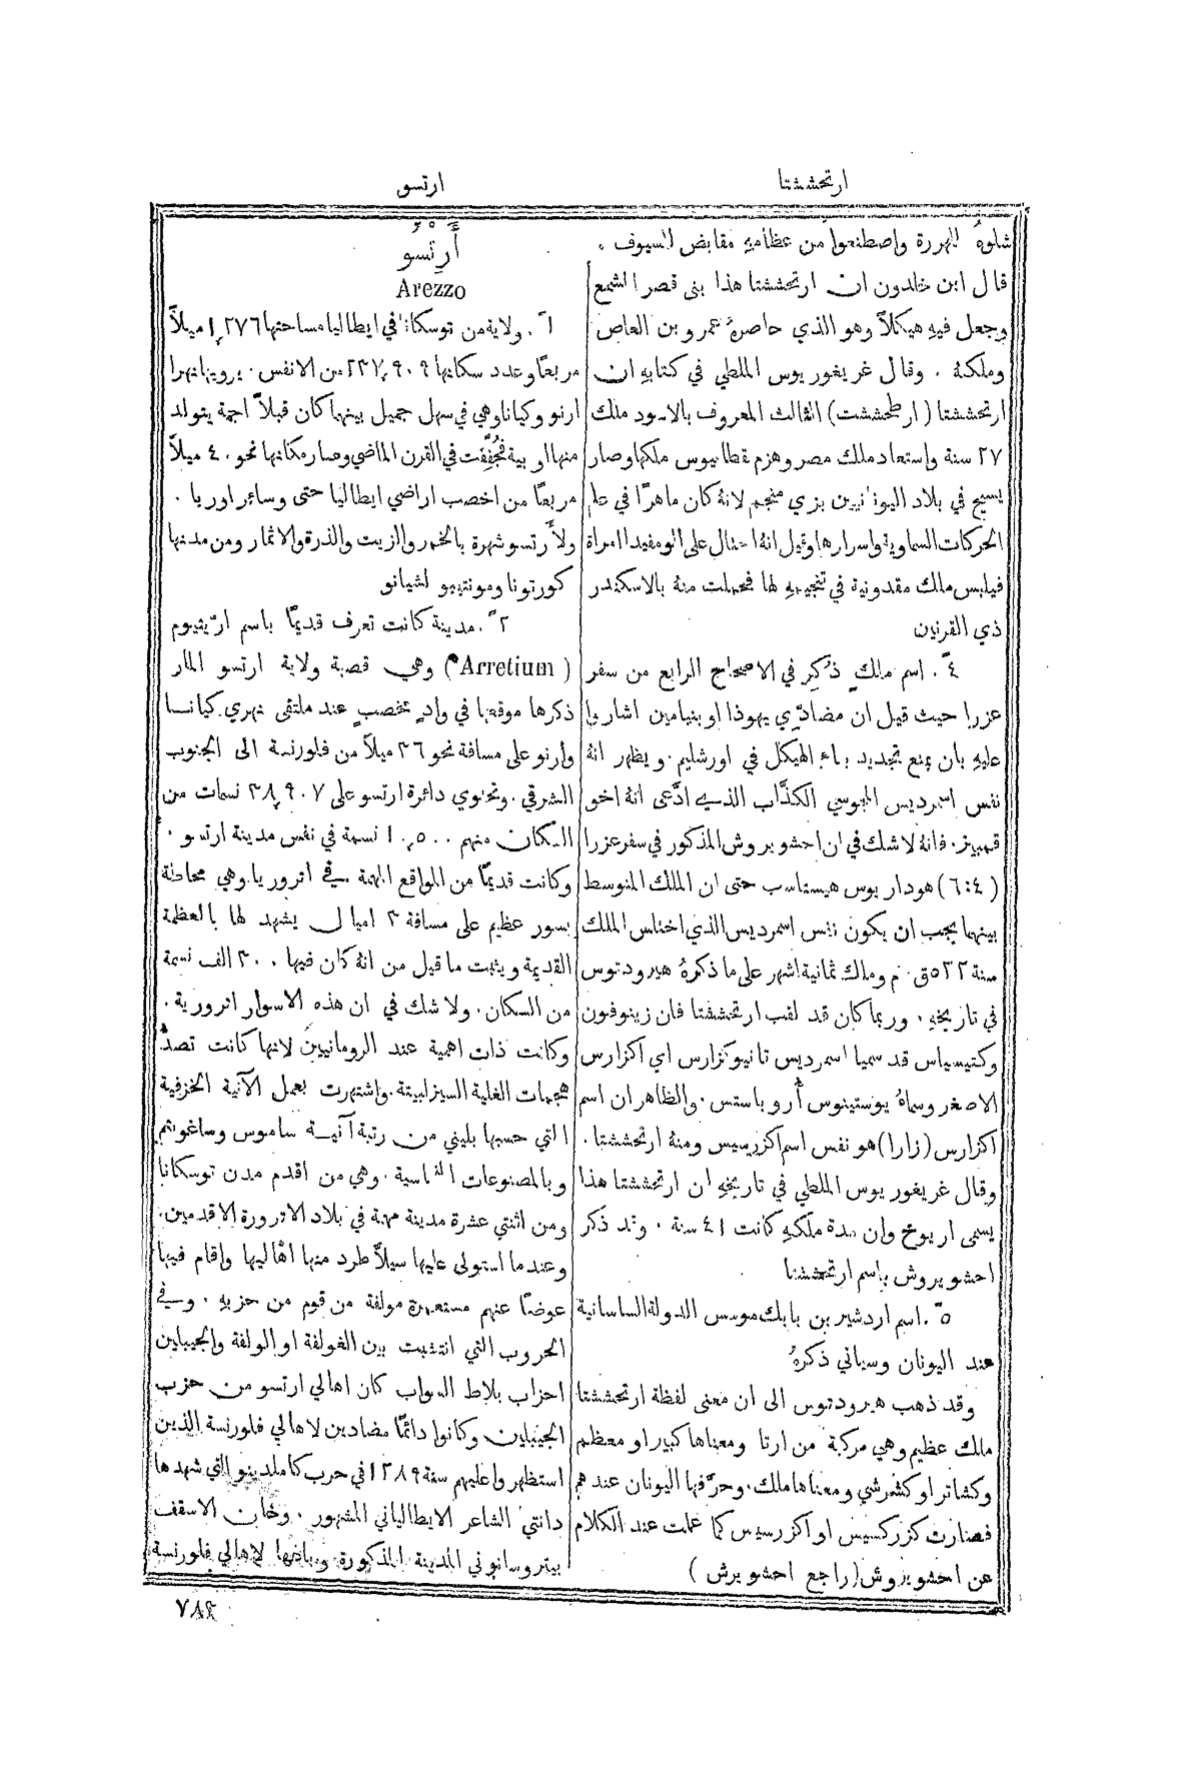 ارتحششتا
ارتسو
شلوهُ للهررة واصطنعوا من عظامهِ مقابض للسيوف .
قال ابن خلدون ان ارتحششتا هذا بنى قصر الشمع
وجعل فيهِ هيكلاً وهو الذي حاصرهُ عمرو بن العاص
وملكهُ . وقال غريغوريوس الملطي في كتابهِ ان
ارتحششتا ( ارطحششت ) الثالث المعروف بالاسود ملك
٢٧ سنة واستعاد ملك مصر وهزم نقطانيوس ملكها وصار
يسيح في بلاد اليونانيين بزي منجم لانهُ كان ماهرًا في علم
الحركات السماوية واسرارها وقيل انهُ احتال على الومفيدا امراة
فيلبس ملك مقدونية في تنجيمهِ لها فحملت منهُ بالاسكندر
ذي القرنين
٤ً . اسم ملكٍ ذُكِر في الاصحاح الرابع من سفر
عزرا حيث قيل ان مضادّي يهوذا او بنيامين اشاروا
عليهِ بان يمنع تجديد بناء الهيكل في اورشليم . ويظهر انهُ
نفس اسمرديس المجوسي الكذَّاب الذي ادَّعى انهُ اخو
قمبيز . فانهُ لا شك في ان احشويروش المذكور في سفر عزرا
( ٤:٦ ) هو داريوس هيستاسب حتى ان الملك المتوسط
بينهما يجب ان يكون نفس اسمرديس الذي اختلس الملك
سنة ٥٢٢ ق . م وملك ثمانية اشهر على ما ذكرهُ هيرودتوس
في تاريخهِ . وربما كان قد لقب ارتحششتا فان زينوفون
وكتيسياس قد سميا اسمرديس تانيوكزارس اي اكزارس
الاصغر وسماهُ يوستينوس أُروباستس . والظاهر ان اسم
اكزارس ( زارا ) هو نفس اسم اكزرسيس ومنهُ ارتحششتا .
وقال غريغوريوس الملطي في تاريخهِ ان ارتحششتا هذا
يسمى اريوخ وان مدة ملكهِ كانت ٤١ سنة . وقد ذكر
احشويروش باسم ارتحششتا
٥ً . اسم اردشير بن بابك موسس الدولة الساسانية
عند اليونان وسياتي ذكرهُ
وقد ذهب هيرودتوس الى ان معنى لفظة ارتحششتا
ملك عظيم وهي مركبة من ارتا ومعناها كبير او معظم
وكشاترا او كشرشي ومعناها ملك . وحرّفها اليونان عندهم
فصارت كزركسيس او اكزرسيس كما علمت عند الكلام
عن احشويروش ( راجع احشويرش )
أَرِتْسو
Arezzo
١ً . ولاية من توسكانا في ايطاليا مساحتها ١٬٢٧٦ ميلاً
مربعًا وعدد سكانها ٢٣٧٬٩٠٩ من الانفس . يرويها نهرا
ارنو وكيانا وهي في سهل جميل بينهما كان قبلاً اجمة يتولد
منها اوبية فجُفِّفت في القرن الماضي وصار مكانها نحو ٤٠ ميلاً
مربعًا من اخصب اراضي ايطاليا حتى وسائر اوربا .
ولأَرتسو شهرة بالخمر والزيت والذرة والاثمار ومن مدنها
كورتونا ومونتيبو لشيانو
٢ً . مدينة كانت تعرف قديمًا باسم اريثيوم
( Arretium ) وهي قصبة ولاية ارتسو المار
ذكرها موقعها في وادٍ مخصبٍ عند ملتقى نهري كيانا
وارنو على مسافة نحو ٣٦ ميلاً من فلورنسة الى الجنوب
الشرقي . وتحتوي دائرة ارتسو على ٣٨٬٩٠٧ نسمات من
السكان منهم ١٠٬٥٠٠ نسمة في نفس مدينة ارتسو .
وكانت قديمًا من المواقع المهمة في اتروريا وهي محاطة
بسور عظيم على مسافة ٣ اميال يشهد لها بالعظمة
القديمة ويثبت ما قيل من انهُ كان فيها ٣٠٠ الف نسمة
من السكان . ولا شك في ان هذه الاسوار اترورية .
وكانت ذات اهمية عند الرومانيين لانها كانت تصدُّ
هجمات الغلية السيزلبينة واشتهرت بعمل الآنية الخزفية
التي حسبها بليني من رتبة آنية ساموس وساغونتم
وبالمصنوعات النحاسية . وهي من اقدم مدن توسكانا
ومن اثنتي عشرة مدينة مهمة في بلاد الاترورة الاقدمين .
وعندما استولى عليها سيلاّ طرد منها اهاليها واقام فيها
عوضًا عنهم مستعمرة مولفة من قوم من حزبهِ . وفي
الحروب التي انتشبت بين الغولفة او الولفة والجيبلين
احزاب بلاط البواب كان اهالي ارتسو من حزب
الجيبلين وكانوا دائمًا مضادين لاهالي فلورنسة الذين
استظهروا عليهم سنة ١٢٨٩ في حرب كاملدينو التي شهدها
دانتي الشاعر الايطالياني المشهور . وخان الاسقف
بيتروسانوني المدينة المذكورة وباعها لاهالي فلورنسة
٧٨٤